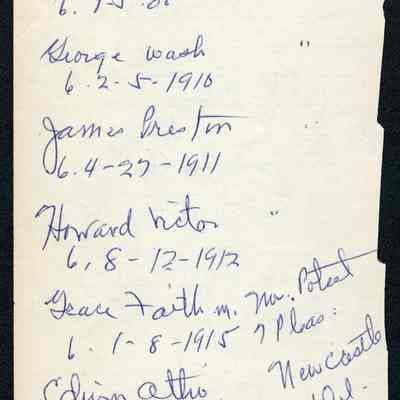 George Wash "
6. 2-5-1910
James Preston
6. 4-27-1911
Howard Victor "
6, 8-12-1912
Grace Faith m. Mr. Poteet
6. 1-8-1915 7 Pleas:
Newcastle
Edison